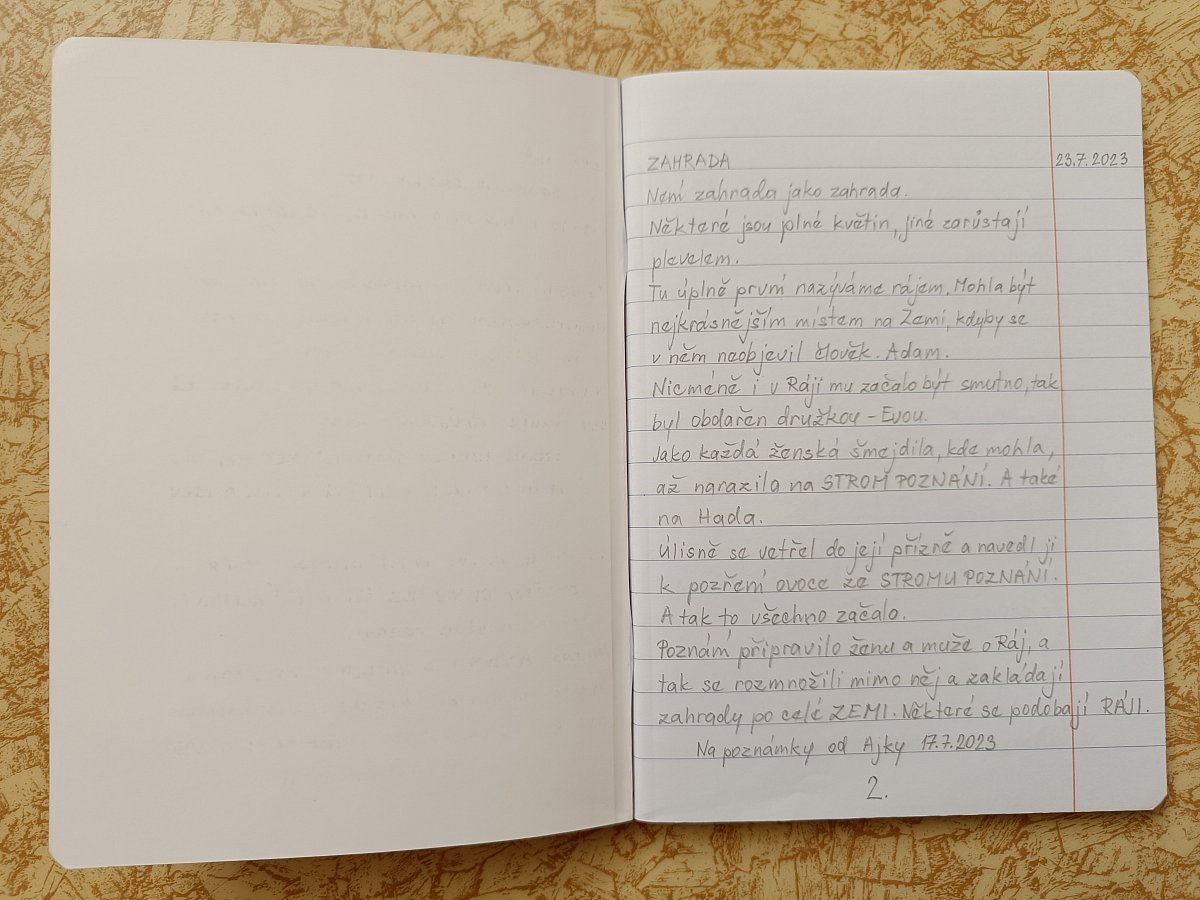 ZAHRADA 23.7.2023
Není zahrada jako zahrada.
Některé jsou plné květin, jiné zarůstají
plevelem.
Tu úplně první nazýváme rájem. Mohla být
nejkrásnějším místem na Zemi, kdyby se
v něm neobjevil člověk. Adam.
Nicméně i v Ráji mu začalo být smutno, tak
byl obdařen družkou – Evou.
Jako každá ženská šmejdila, kde mohla,
až narazila na STROM POZNÁNÍ. A také
na Hada.
Úlisně se vetřel do její přízně a navedl ji
k pozření ovoce ze STROMU POZNÁNÍ.
A tak to všechno začalo.
Poznání připravilo ženu a muže o Ráj, a
tak se rozmnožili mimo něj a zakládají
zahrady po celé ZEMI. Některé se podobají RÁJI.
Na poznámky od Ajky 17.7.2023
2.